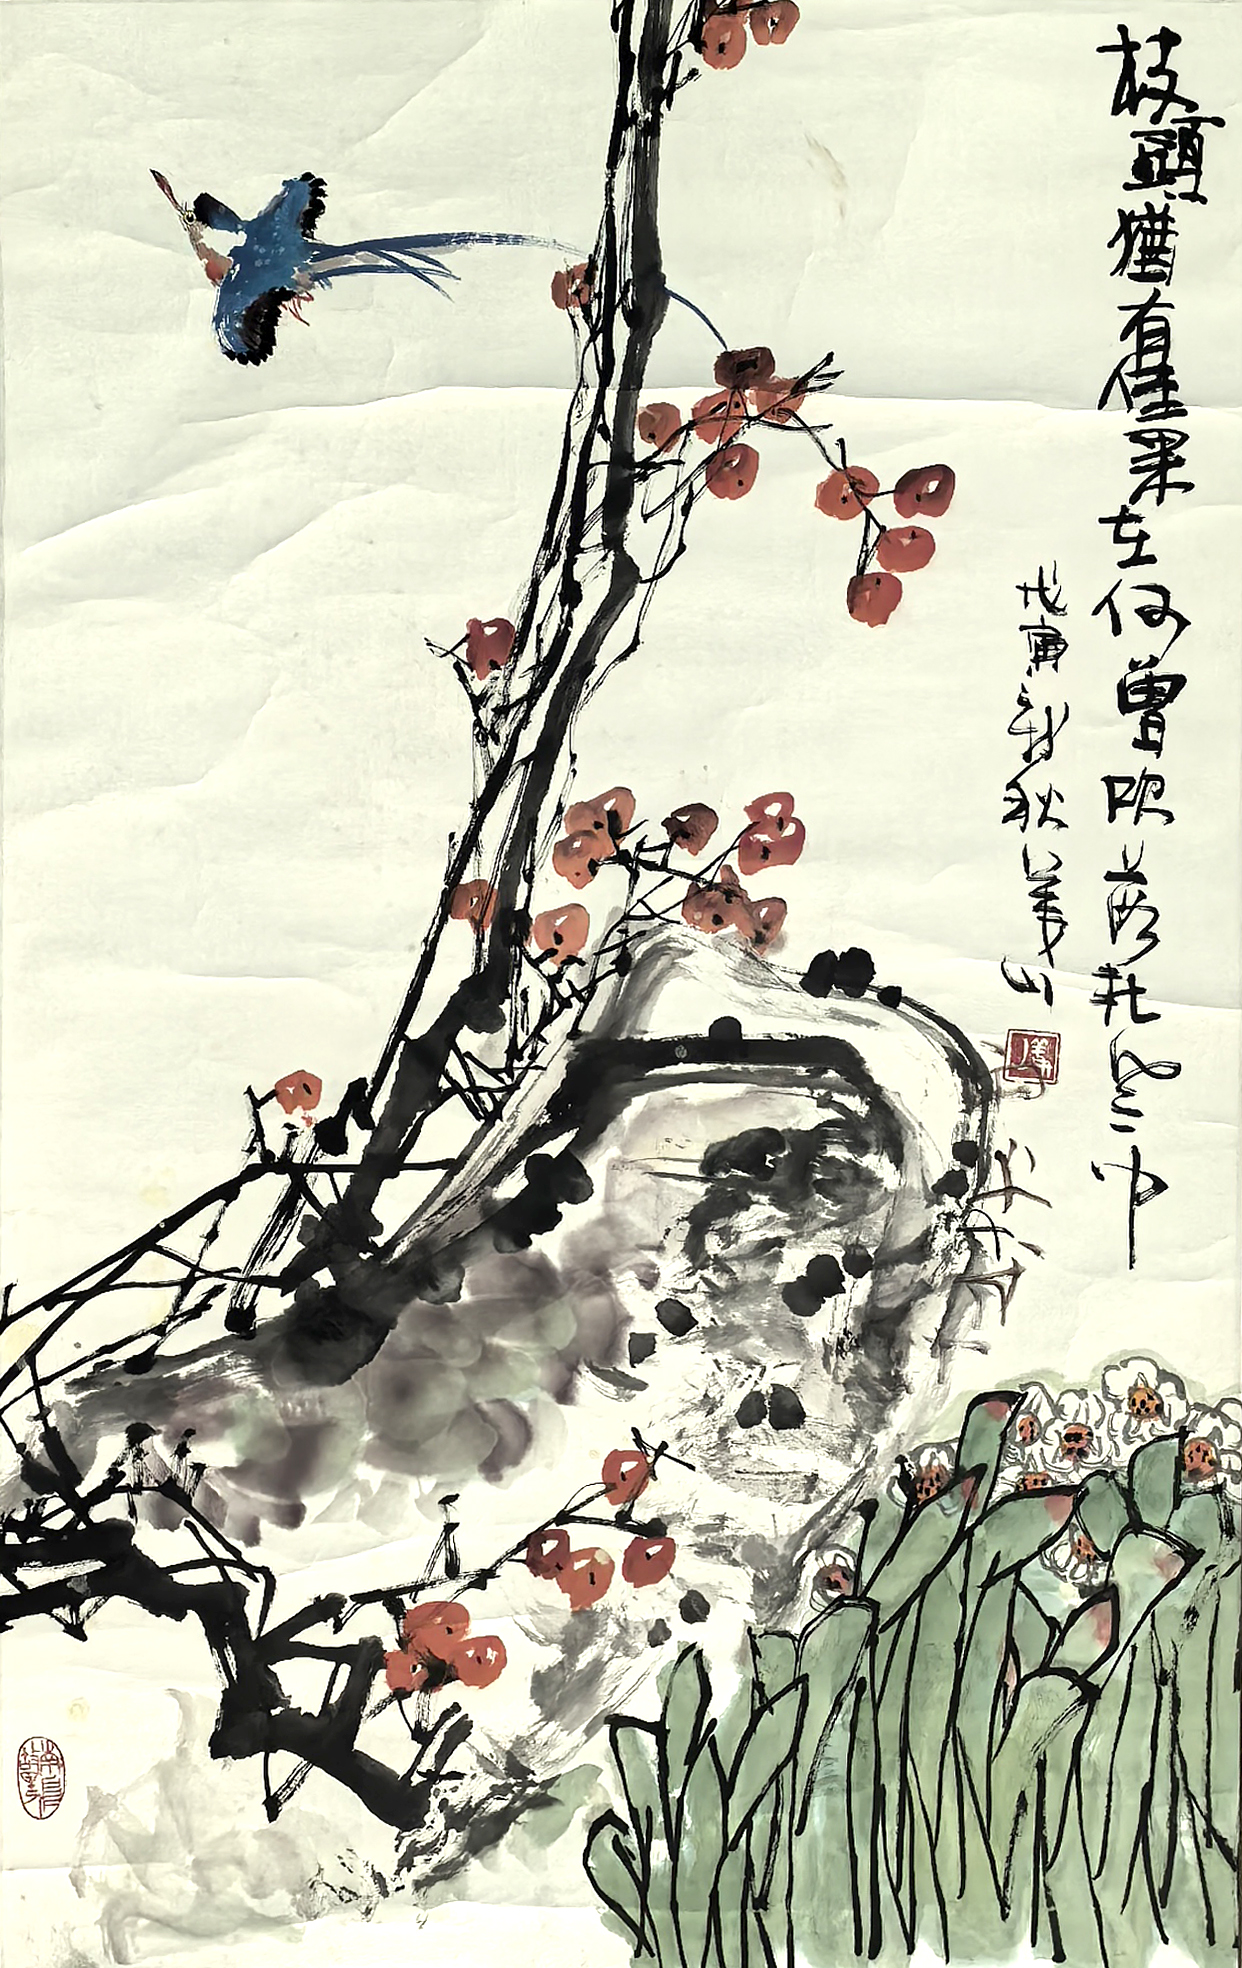 枝頭猶有佳果在何曾吹落北風中
戊寅新秋義山